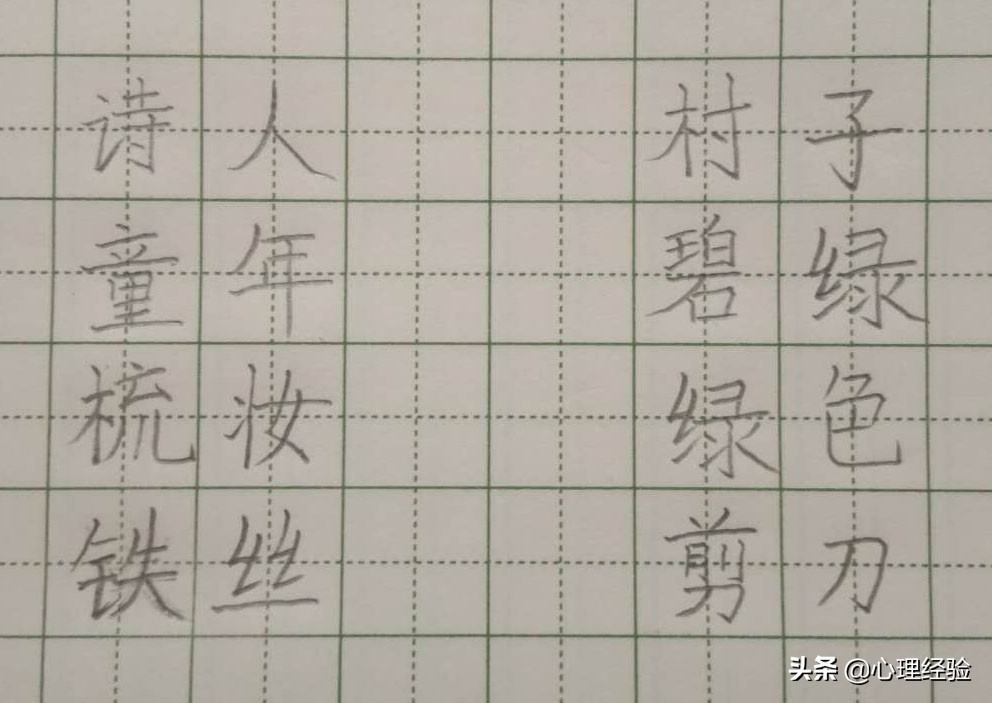 诗人 村子
童年 碧绿
梳妆 绿色
铁丝 剪刀
头条 @心理经验